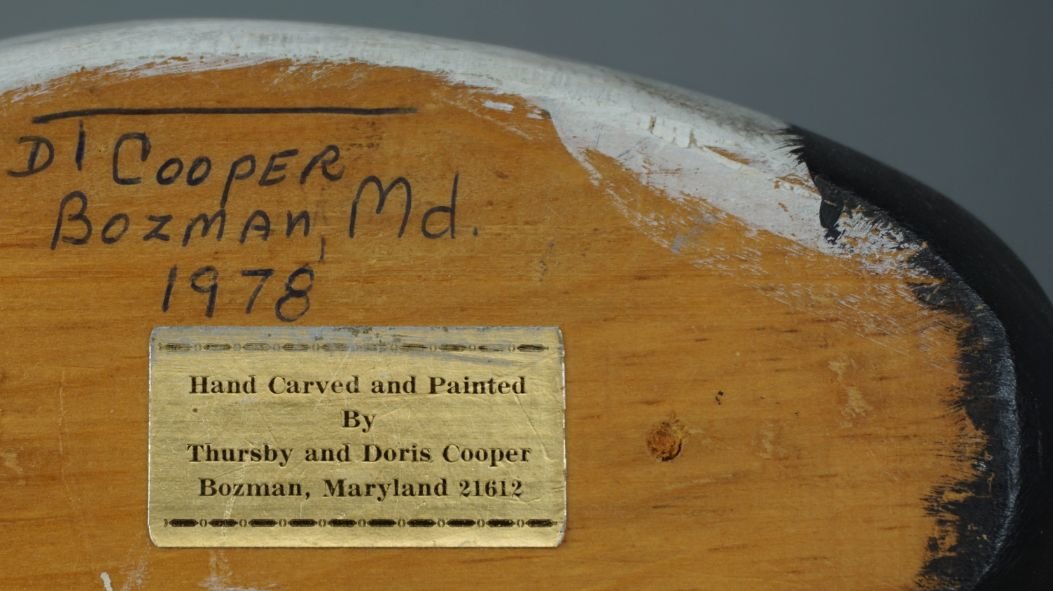 DT Cooper
Bozman, Md.
1978
Hand Carved and Painted
By
Thursby and Doris Cooper
Bozman, Maryland 21612